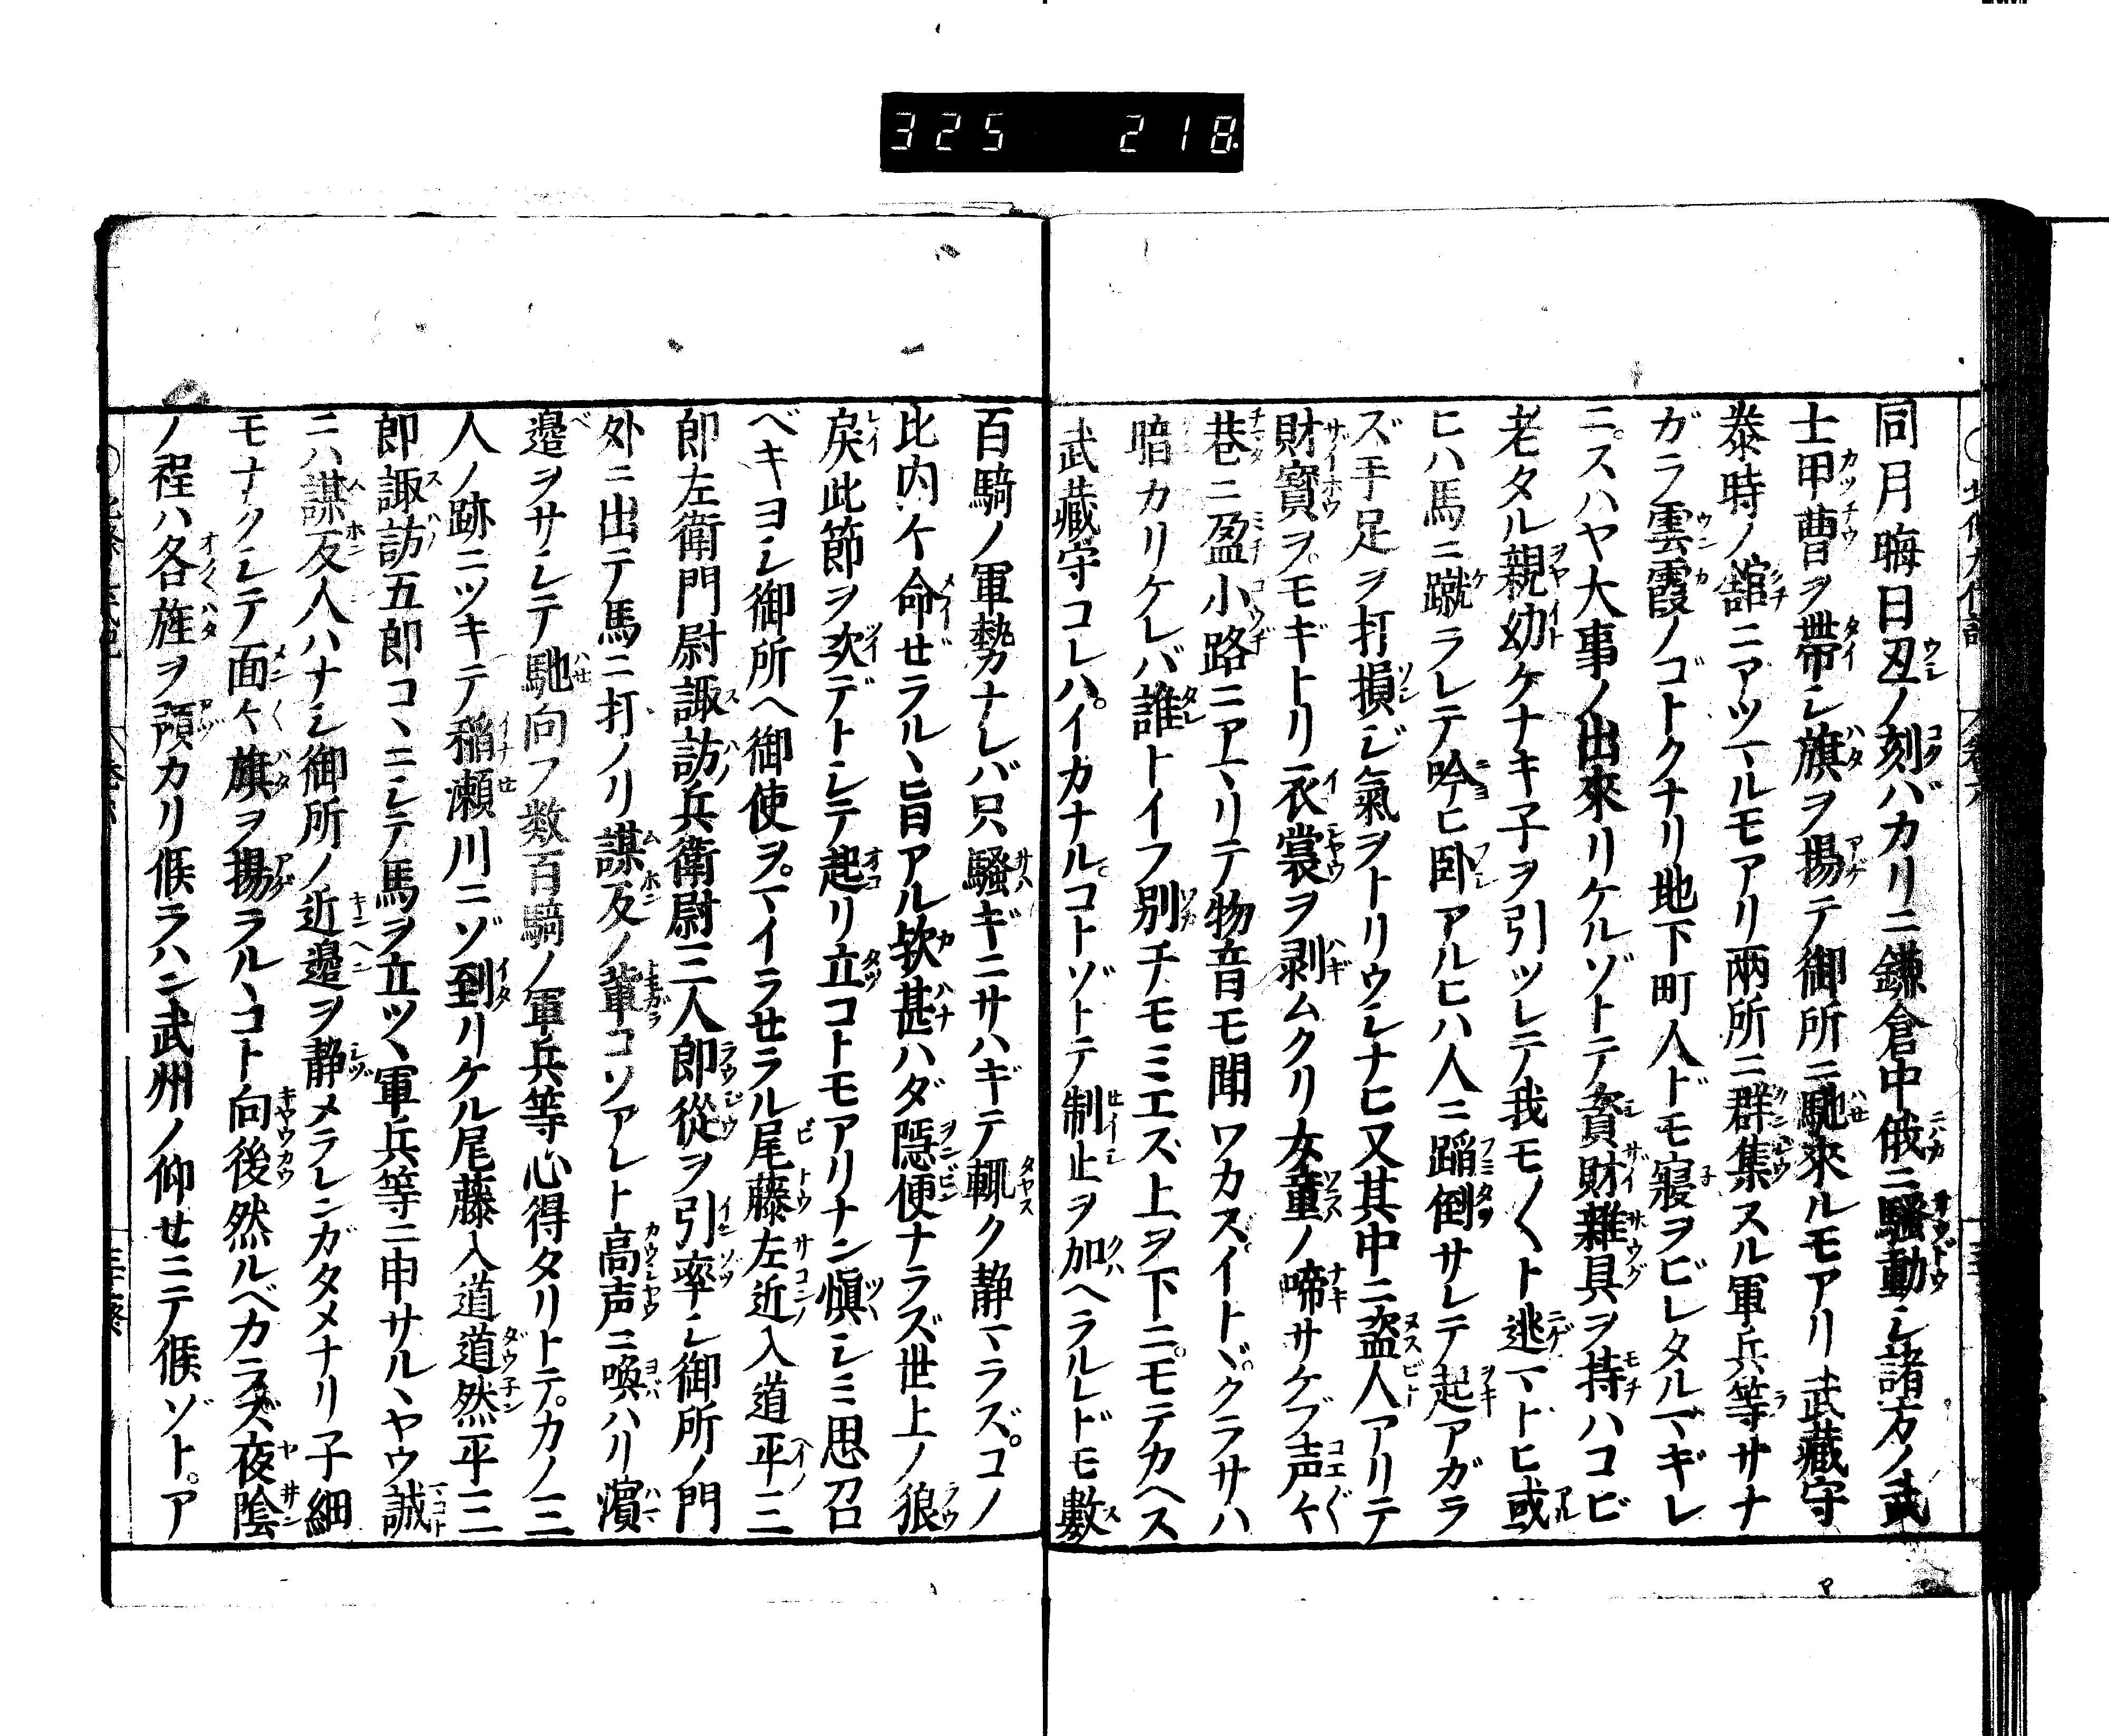 325 218
同月晦日丑ノ刻バカリニ鎌倉中俄ニ騷動シ諸方ノ武
士甲曹ヲ帶シ旗ヲ揚テ御所ニ馳來ルモアリ武藏守
泰時ノ舘ニアツマルモアリ兩所ニ群集スル軍兵等サナ
ガラ雲霞ノゴトクナリ地下町人ドモ寢ヲビレタルマギレ
ニスハヤ大事ノ出來リケルゾトテ資財雜具ヲ持ハコビ
老タル親幼ケナキ子ヲ引ツレテ我モ〱ト逃マトヒ或
ヒハ馬ニ蹴ラレテ吟ヒ卧アルヒハ人ニ蹈倒サレテ起アガラ
ズ手足ヲ打損ジ氣ヲトリウシナヒ又其中ニ盗人アリテ
財寳ヲモギトリ衣裳ヲ剥ムクリ女童ノ啼サケブ声々
巷ニ盈小路ニアマリテ物音モ聞ワカズイトヾクラサハ
暗カリケレバ誰トイフ別チモミエズ上ヲ下ニモテカヘス
武藏守コレハイカナルコトゾトテ制止ヲ加ヘラルレドモ數
百騎ノ軍勢ナレバ只騷ギニサハギテ輙ク静マラズコノ
比内々命ゼラルヽ旨アル欤甚ハダ隱便ナラズ世上ノ狼
戻此節ヲ次デトシテ起リ立コトモアリナン愼シミ思召
ベキヨシ御所ヘ御使ヲマイラセラル尾藤左近入道平三
郎左衛門尉諏訪兵衛尉三人郎從ヲ引率シ御所ノ門
外ニ出テ馬ニ打ノリ謀反ノ輩コソアレト高声ニ喚ハリ濵
邉ヲサシテ馳向フ数百騎ノ軍兵等心得タリトテカノ三
人ノ跡ニツキテ稲瀬川ニゾ到リケル尾藤入道道然平三
郎諏訪五郎コヽニシテ馬ヲ立ツヽ軍兵等ニ申サルヽヤウ誠
ニハ謀反人ハナシ御所ノ近邉ヲ静メラレンガタメナリ子細
モナクシテ面々旗ヲ揚ラルヽコト向後然ルベカラズ夜陰
ノ程ハ各旌ヲ預カリ候ラハン武州ノ仰セニテ候ゾトア